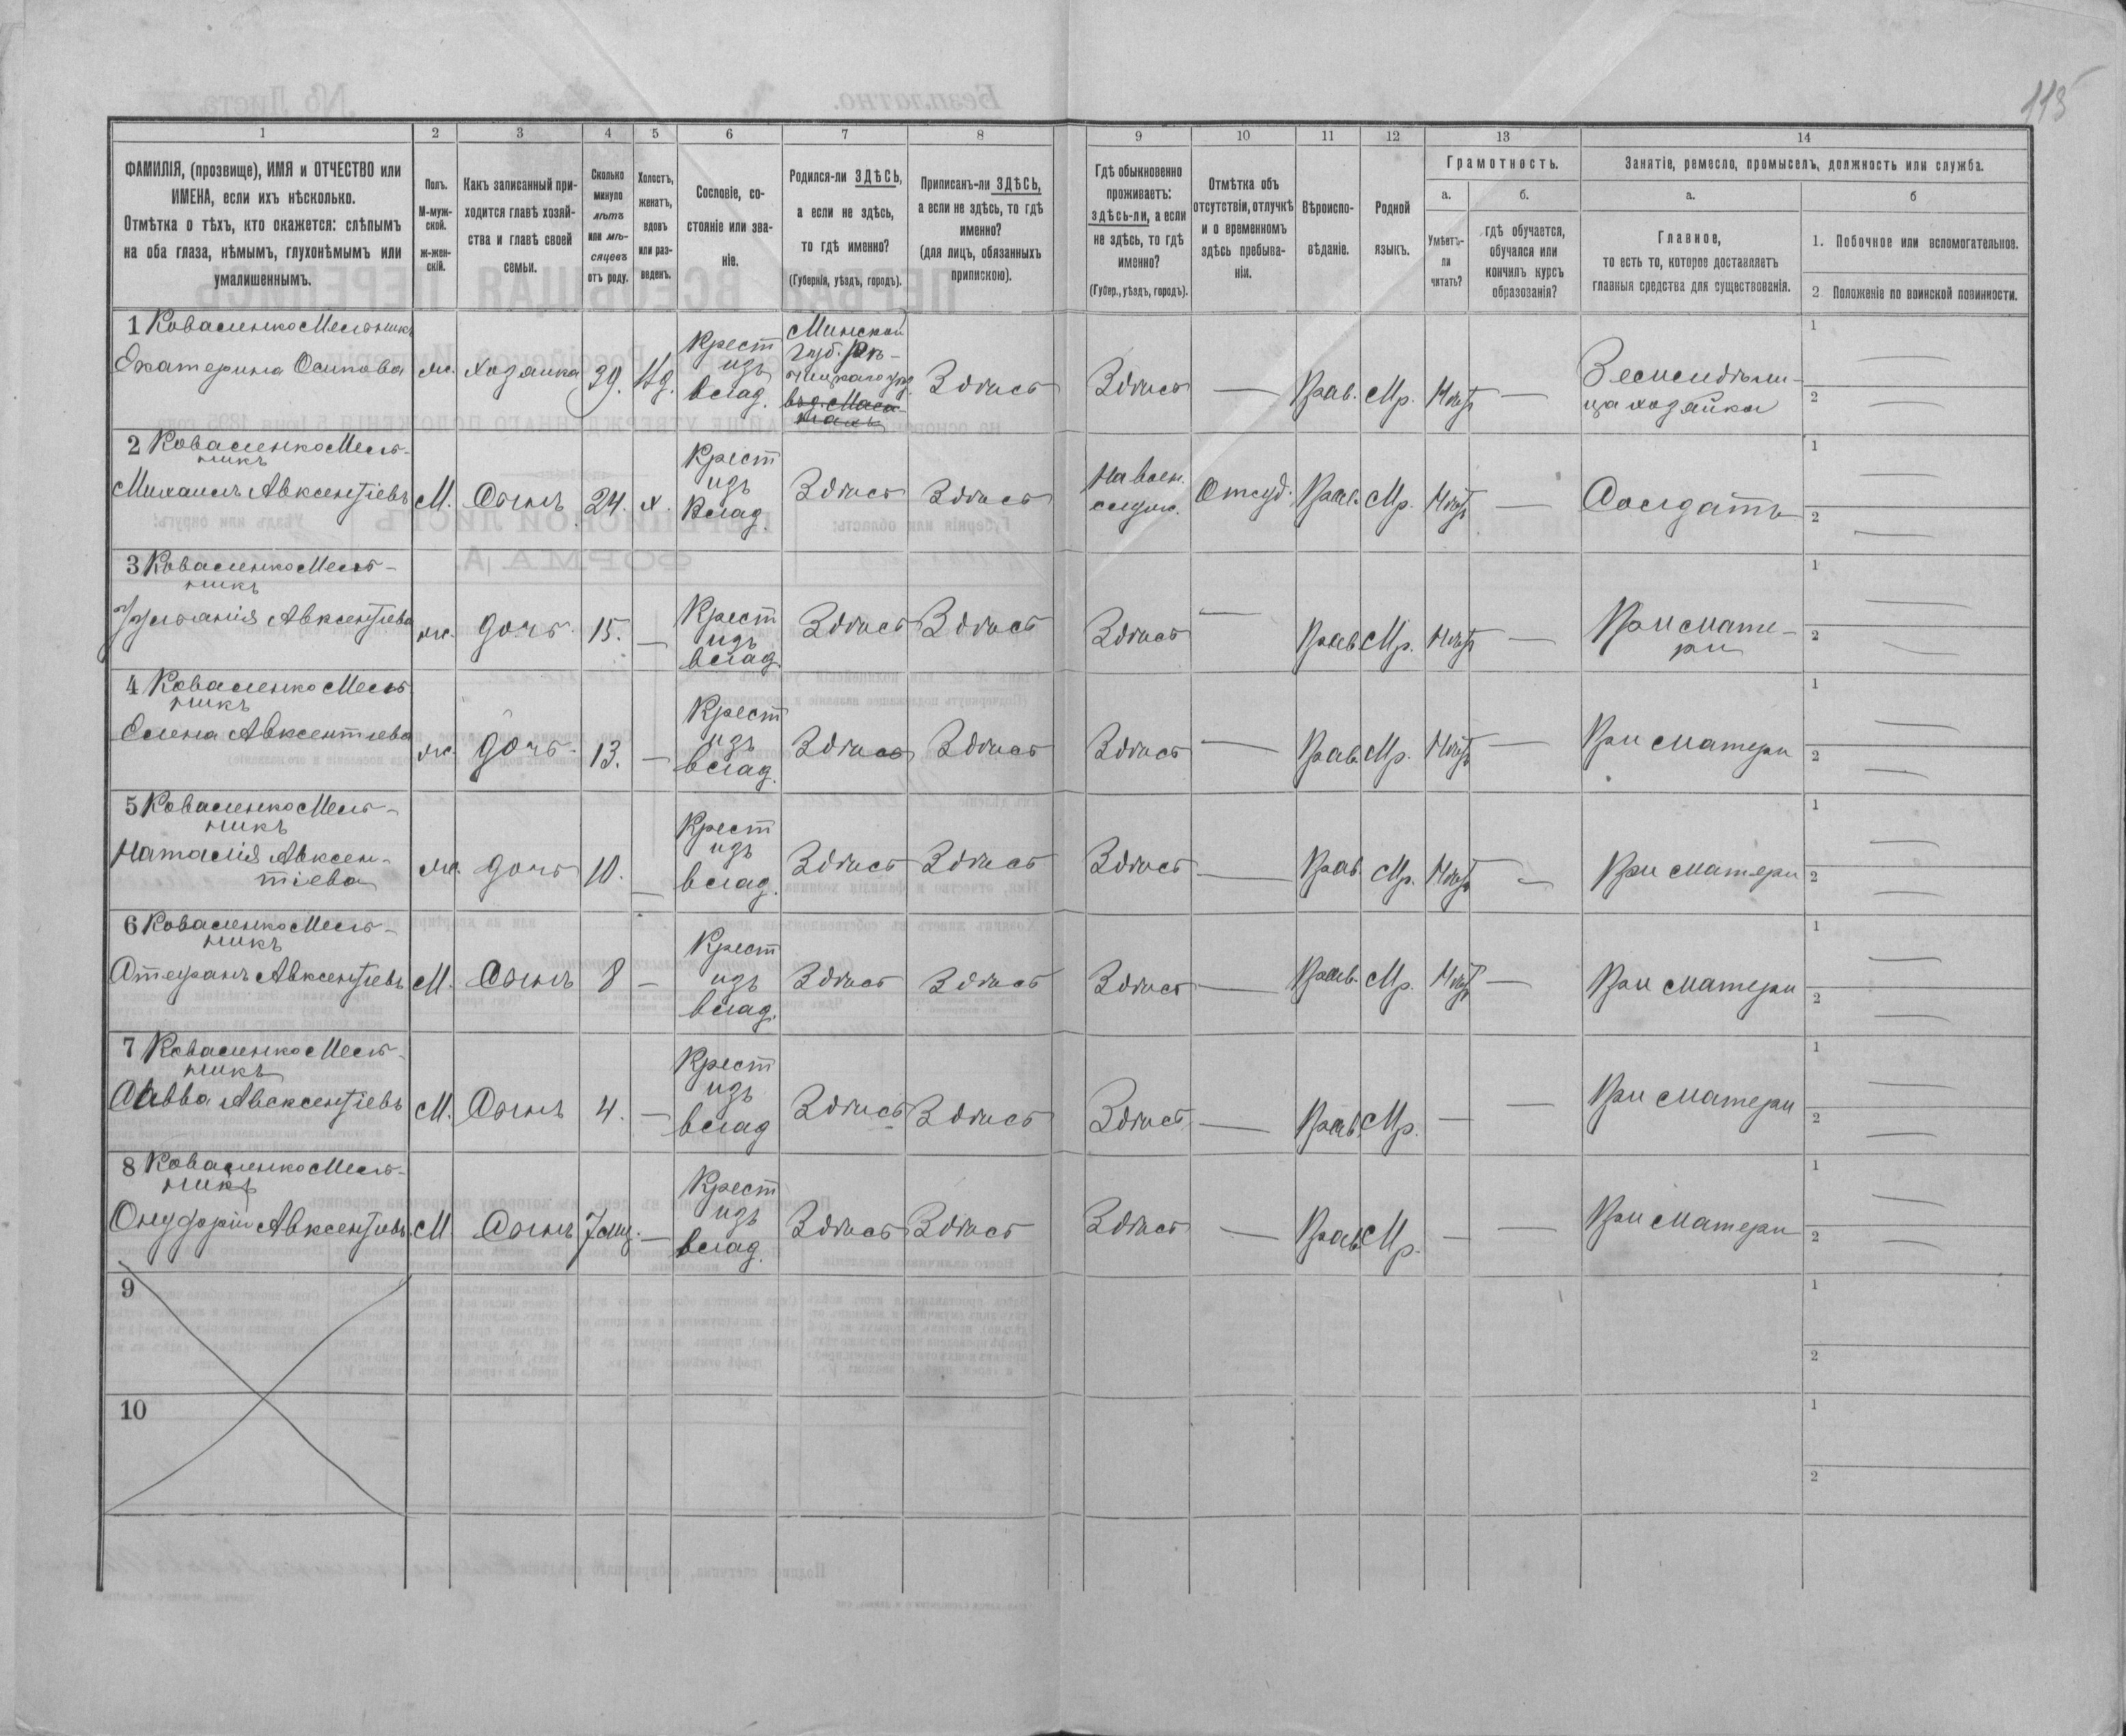 115
1 2 3 4 5 6 7 8 9 10 11 12 13 14
ФАМИЛІЯ, (прозвище), ИМЯ и ОТЧЕСТВО или
ИМЕНА, если ихъ нѣсколько.
Отмѣтка о тѣхъ, кто окажется: слѣпымъ
на оба глаза, нѣмымъ, глухонѣмымъ или
умалишеннымъ.
Полъ.
М-муж-
ской.
ж-жен-
скій.
Какъ записанный при-
ходится главѣ хозяй-
ства и главѣ своей
семьи.
Сколько
минуло
лѣтъ
или мѣ-
сяцевъ
отъ роду.
Холостъ,
женатъ,
вдовъ
или раз-
веденъ.
Сословіе, со-
стояніе или зва-
ніе.
Родился-ли ЗДѢСЬ,
а если не здѣсь,
то гдѣ именно?
(Губернія, уѣздъ, городъ).
Приписанъ-ли ЗДѢСЬ,
а если не здѣсь, то гдѣ
именно?
(для лицъ, обязанныхъ
припискою).
Гдѣ обыкновенно
проживаетъ:
здѣсь-ли, а если
не здѣсь, то гдѣ
именно?
(Губер., уѣздъ, городъ).
Отмѣтка объ
отсутствіи, отлучкѣ
и о временномъ
здѣсь пребыва-
ніи.
Вѣроиспо-
вѣданіе.
Родной
языкъ.
Грамотность.
а.
Умѣетъ-
ли
читать?
б.
гдѣ обучается,
обучался или
кончилъ курсъ
образованія?
Занятіе, ремесло, промыселъ, должность или служба.
а.
Главное,
то есть то, которое доставляетъ
главныя средства для существованія.
б
1. Побочное или вспомогательное.
2. Положеніе по воинской повинности.
1 Коваленко Мельникъ
Екатерина Осипова
ж. хозяйка 39. Вд.
Крест
изъ
влад.
Минской
губ. Рѣ-
чицкаго
Здѣсь Здѣсь — Прав. Мр. Нѣтъ —
Земледѣли-
ца хозяйка
1 —
2 —
2 Коваленко Мель-
никъ
Михаилъ Авксентіевъ
М. Сынъ 24. х.
Крест
изъ
Влад.
Здѣсь Здѣсь
На воен.
служ.
Отсут. Прав. Мр. Нѣтъ — Солдатъ
1
2 —
3 Коваленко Мель-
никъ
Ульянія Авксентіева
ж. дочь 15. —
Крест
изъ
влад.
Здѣсь Здѣсь Здѣсь — Прав Мр. Нѣтъ —
При мате-
ри
1 —
2 —
4 Коваленко Мель
никъ
Елена Авксентіева
ж. дочь 13. —
Крест
изъ
влад.
Здѣсь Здѣсь Здѣсь — Прав. Мр. Нѣтъ — При матери
1 —
2 —
5 Коваленко Мель-
никъ
Наталія Авксен-
тіева
ж. дочь 10. —
Крест
изъ
влад.
Здѣсь Здѣсь Здѣсь — Прав. Мр. Нѣтъ — При матери
1 —
2 —
6 Коваленко Мель-
никъ
Стефанъ Авксентіевъ
М. Сынъ 8 —
Крест
изъ
влад.
Здѣсь Здѣсь Здѣсь — Прав. Мр. Нѣтъ — При матери
1 —
2 —
7 Коваленко Мель-
никъ
Савва Авексентіевъ
М. Сынъ 4. —
Крест
изъ
влад
Здѣсь Здѣсь Здѣсь — Прав. Мр. — — При матери
1 —
2 —
8 Коваленко Мель-
никъ
Онуфрій Авксентіевъ.
М Сынъ 7 мц. —
Крест
изъ
влад.
Здѣсь Здѣсь Здѣсь — Прав. Мр. — — При матери
1 —
2 —
9
1
2
10
1
2